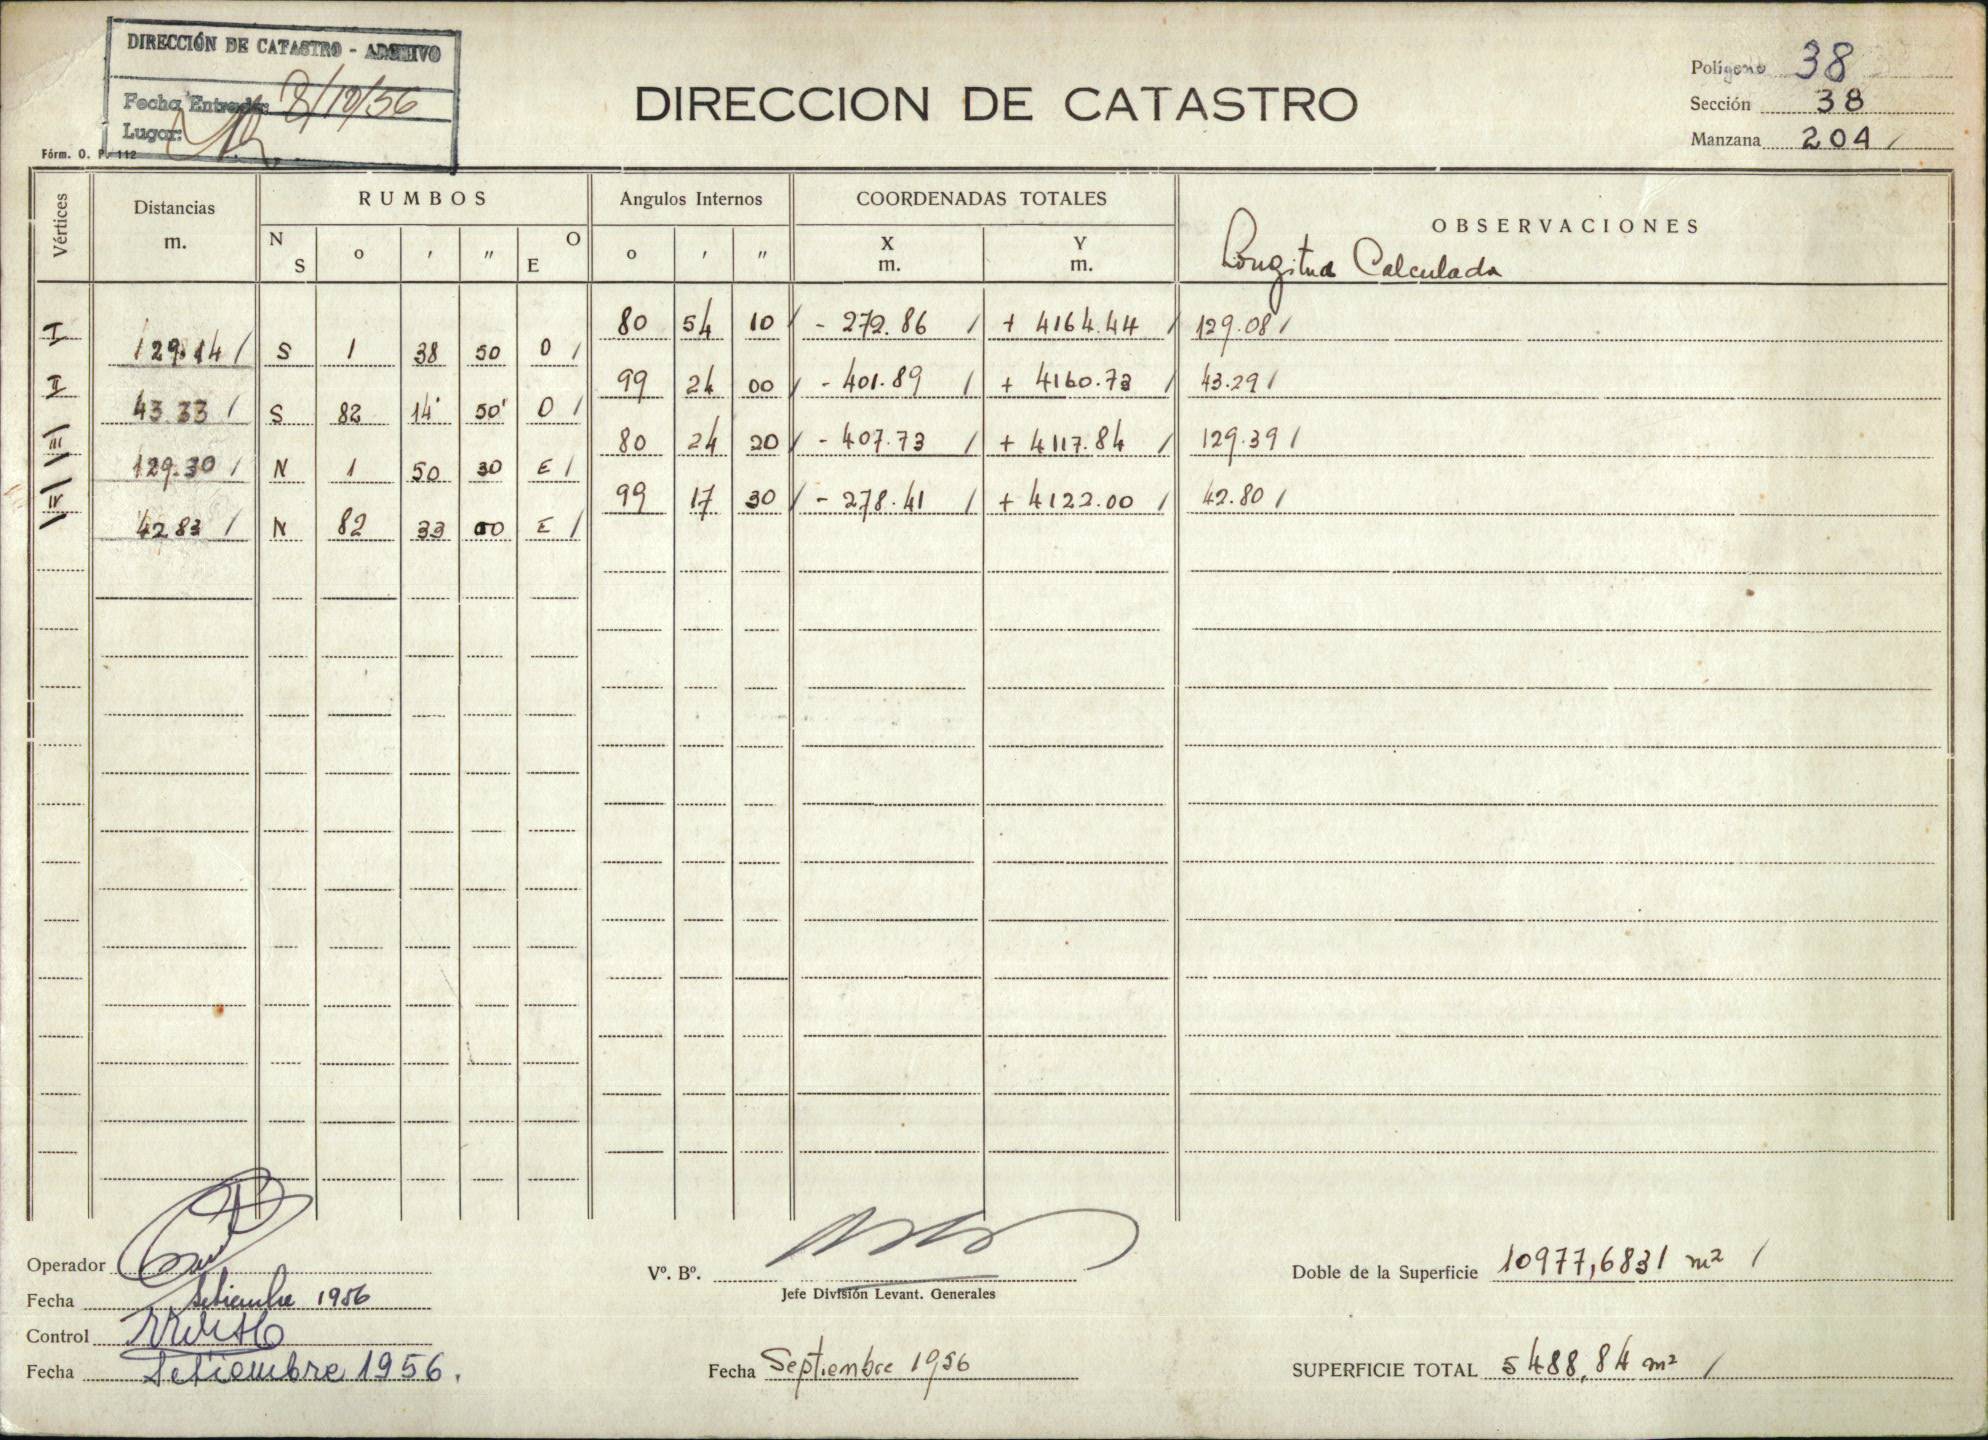 DIRECCIÓN DE CATASTRO - ARCHIVO
Fecha Entrada: 8/10/56
Lugar:
Fórm. O. P. 112
DIRECCION DE CATASTRO
Polígono 38
Sección 38
Manzana 204 /
Vértices
Distancias
m.
RUMBOS
N S
o
'
"
O E
Angulos Internos
o
'
"
COORDENADAS TOTALES
X
m.
Y
m.
OBSERVACIONES
Longitud Calculada
I 80 54 10 / - 272.86 / + 4164.44 / 129.08 /
129.14 / S 1 38 50 O /
II 99 24 00 / - 401.89 / + 4160.73 / 43.29 /
43.33 / S 82 14' 50' O /
III 80 24 20 / - 407.73 / + 4117.84 / 129.39 /
129.30 / N 1 50 30 E /
IV 99 17 30 / - 278.41 / + 4122.00 / 42.80 /
42.83 / N 82 33 00 E /
Operador
Fecha Setiembre 1956
Control
Fecha Setiembre 1956.
Vº. Bº.
Jefe División Levant. Generales
Fecha Septiembre 1956
Doble de la Superficie 10977,6831 m² /
SUPERFICIE TOTAL 5488,84 m² /